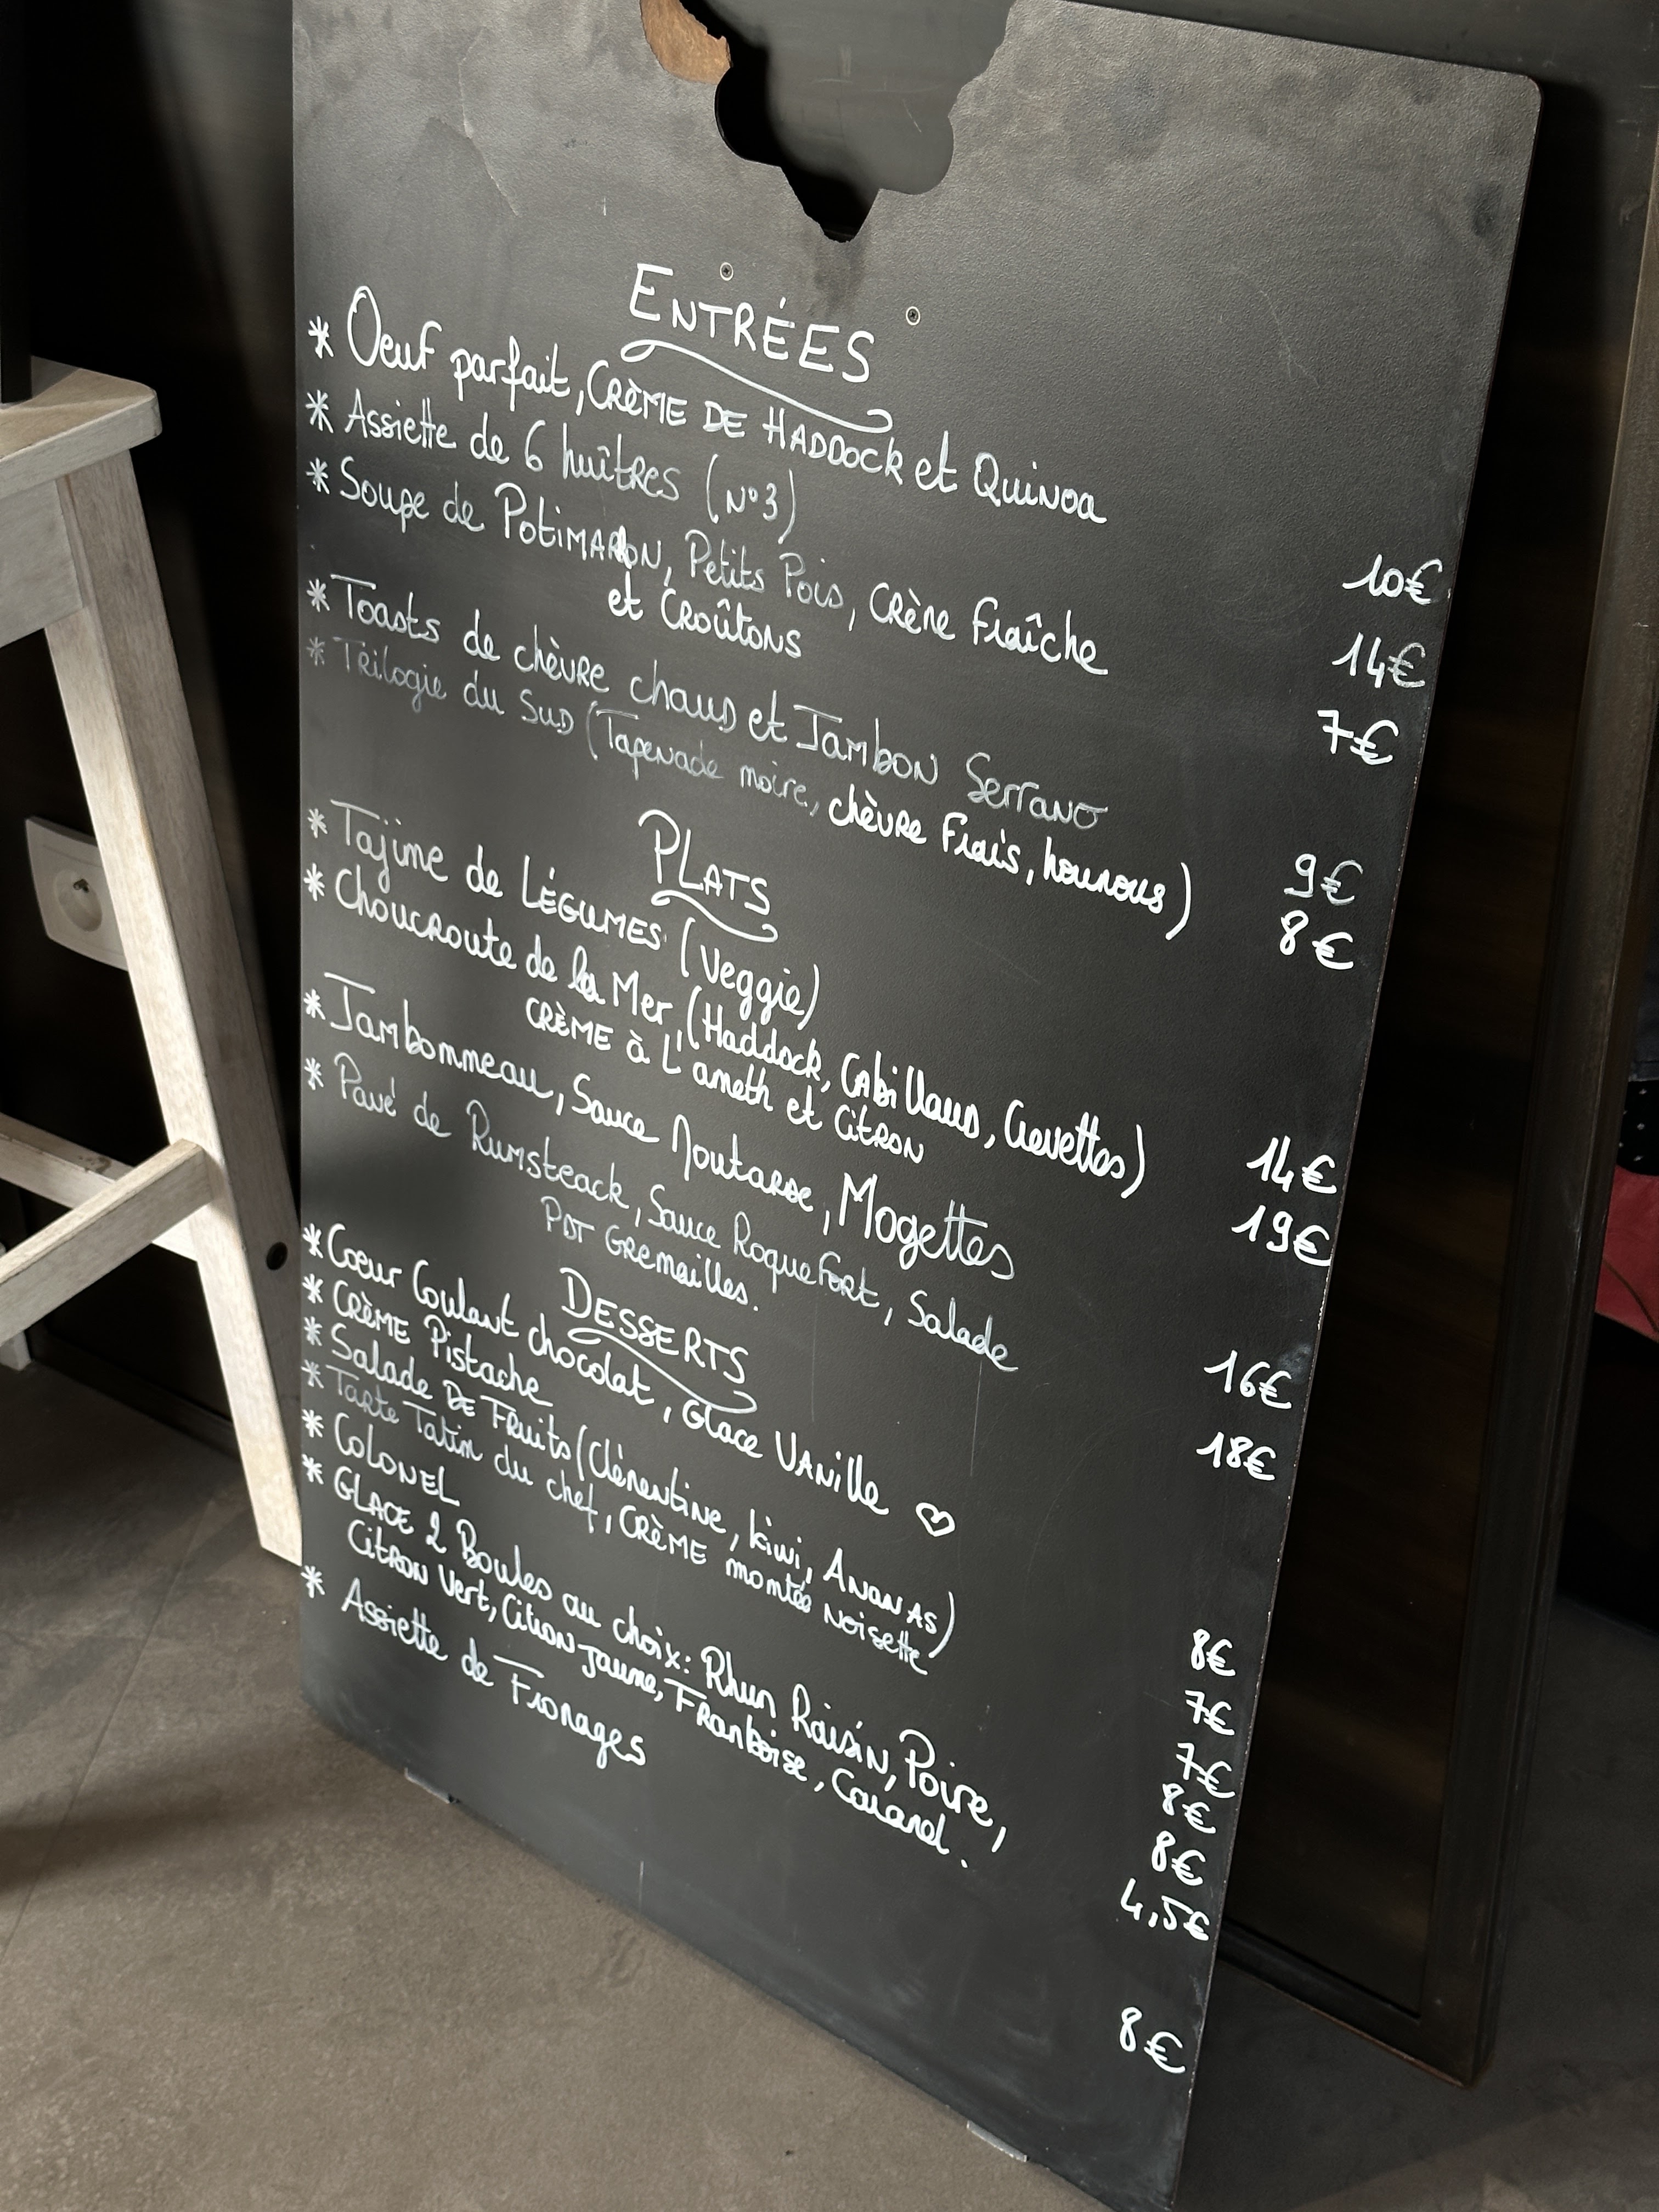 ENTRÉES
* Oeuf parfait, CRÈME DE HADDOCK et Quinoa 10€
* Assiette de 6 huîtres (N°3) 14€
* Soupe de POTIMARRON, Petits Pois, CRème Fraîche 7€
et CROÛTONS
* Toasts de chèvre chaud et JAMBON Serrano 9€
* Trilogie du SUD (Tapenade noire, chèvre Frais, houmous) 8€
PLATS
* Tajine de LÉGUMES (Veggie) 14€
* Choucroute de la Mer (Haddock, Cabillaud, Crevettes) 19€
CRÈME à L'aneth et CITRON
* Jambonneau, Sauce Moutarde, Mogettes 16€
* Pavé de Rumsteack, Sauce RoqueFort, Salade 18€
PDT GRenailles.
DESSERTS
* Coeur Coulant chocolat, Glace VANille ♡ 8€
* CRÈME Pistache 7€
* Salade DE FRuits (Clémentine, kiwi, ANANAS) 7€
* Tarte Tatin du chef, CRÈME montée Noisette 8€
* COLONEL 8€
* GLACE 2 Boules au choix: Rhum Raisin, Poire, 4,5€
CITRON Vert, Citron Jaune, FRamboise, Caramel.
* Assiette de Fromages 8€